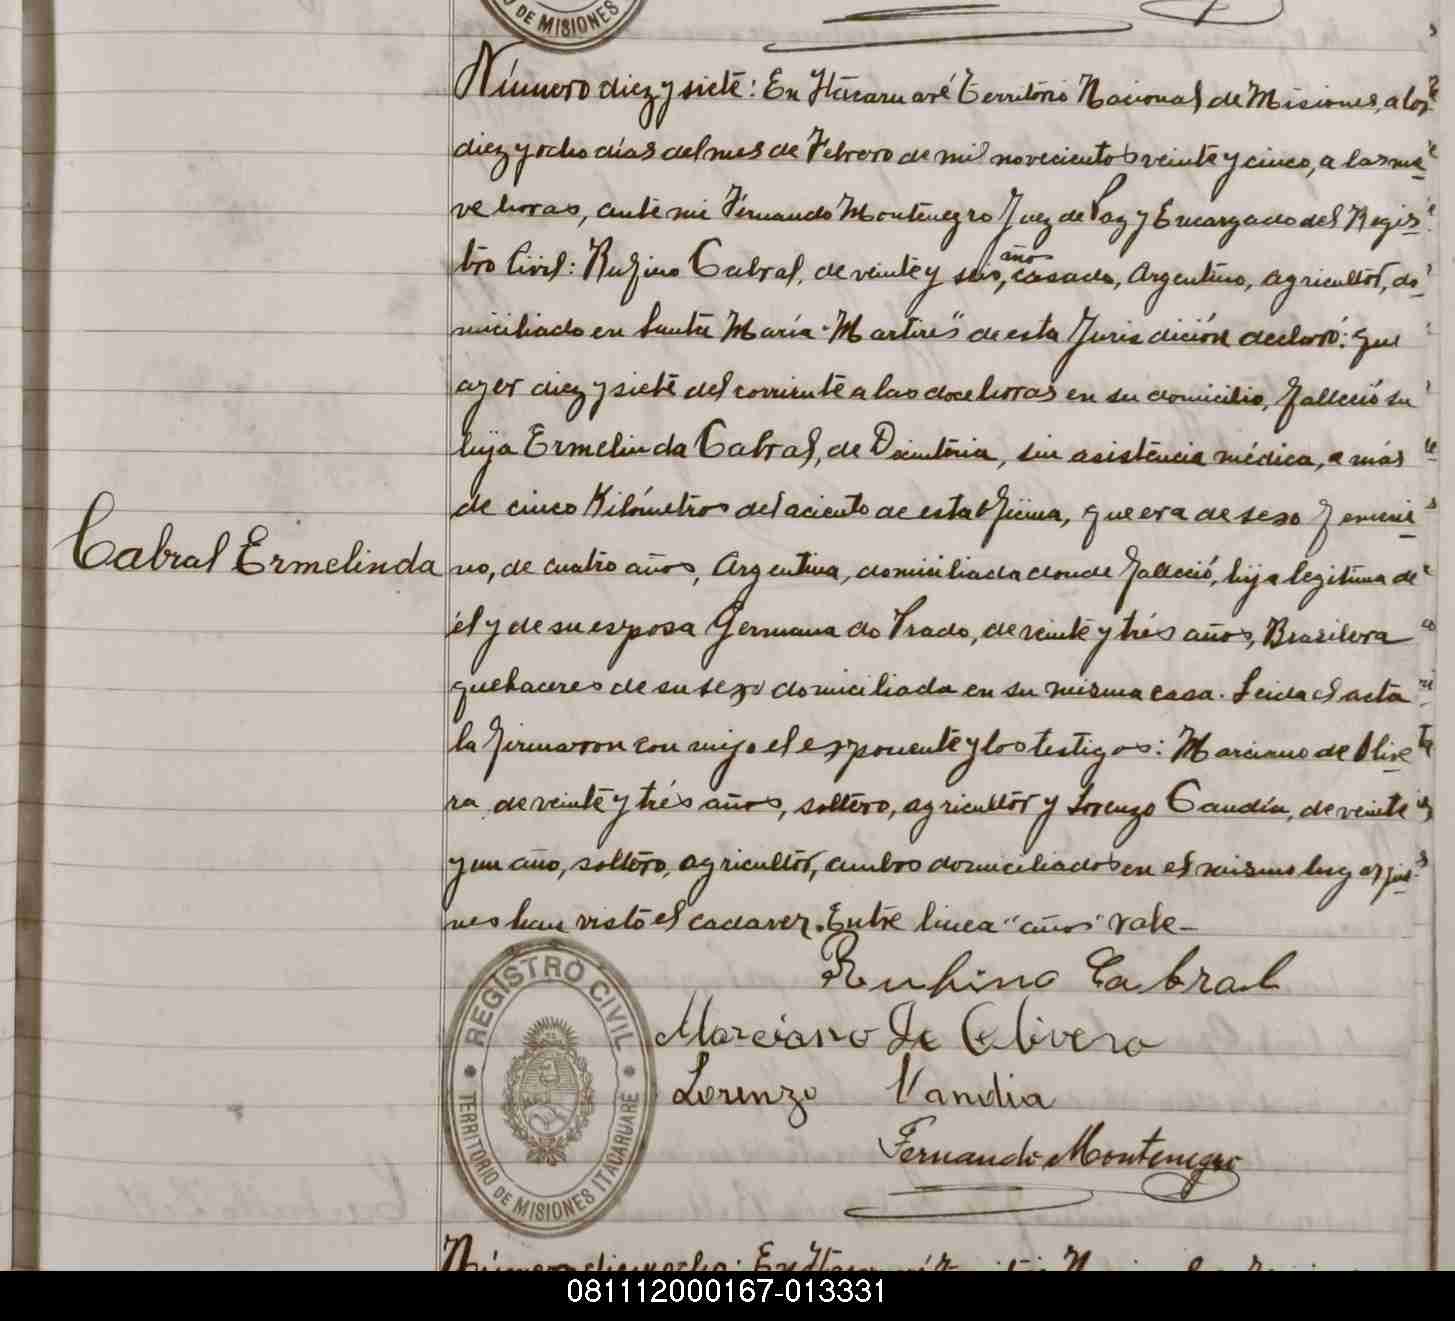 O DE MISIONES
Número diez y siete: En Itacaruaré Territorio Nacional de Misiones, a los
diez y ocho días del mes de Febrero de mil novecientos veinte y cinco, a las nue
ve horas, ante mi Fernando Montenegro Juez de Paz y Encargado del Regis
años
tro Civil: Rufino Cabral, de veinte y seis, casado, Argentino, agricultor, do
miciliado en Santa María "Martires" de esta Jurisdición declaró: que
ayer diez y siete del corriente a las doce horas en su domicilio, falleció su
hija Ermelinda Cabral, de Decinteria, sin asistencia médica, a más
de cinco Kilómetros del aciento de esta Oficina, que era de sexo femeni
Cabral Ermelinda
no, de cuatro años, Argentina, domiciliada donde falleció, hija legitima de
él y de su esposa Germana do Prado, de veinte y trés años, Brasilera
quehaceres de su sexo domiciliada en su misma casa. Leida el acta
la firmaron con migo el exponente y los testigos: Marciano de Olive
ra, de veinte y trés años, soltero, agricultor y Lorenzo Gandía, de veinte
y un año, soltero, agricultor, ambos domiciliados en el mismo lugar quie
nes han visto el cadaver. Entre linea "años" vale-
Ruhino Cabral
Marciano De Olivera
Lorenzo Vandia
Fernando Montenegro
REGISTRO CIVIL
TERRITORIO DE MISIONES ITACARUARE
081112000167-013331